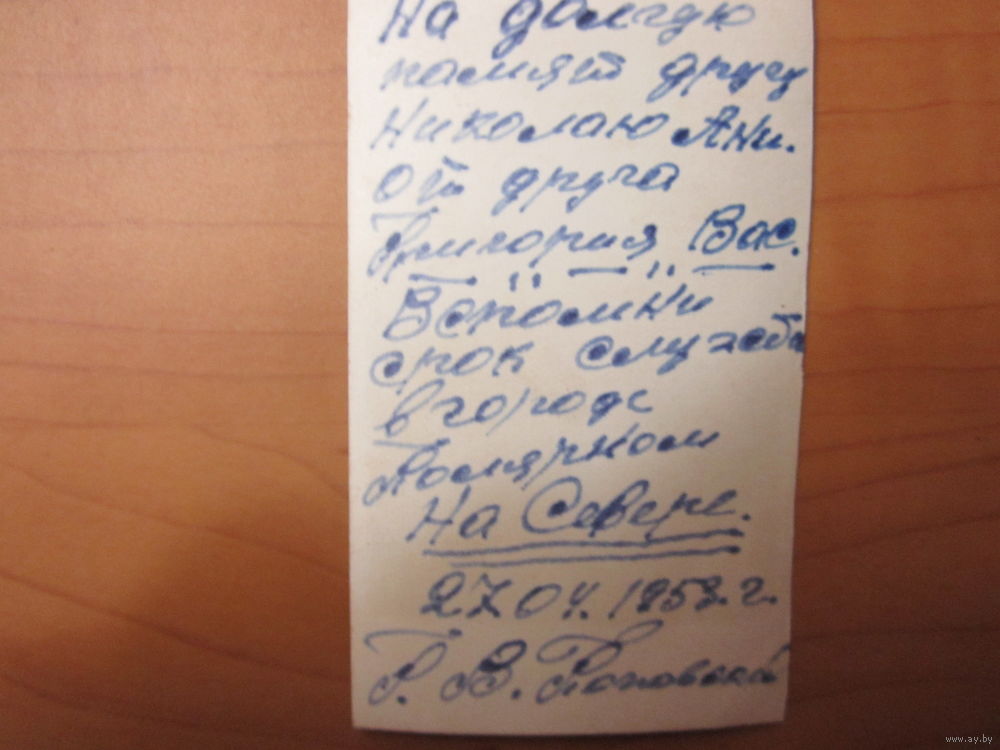 На долгую
памят другу
Николаю Ани.
от друга
Григория Вас.
Вспомни
срок службы
в городе
Полярном
На Севере.
27.04.1953.г.
Г. В.
www.ay.by